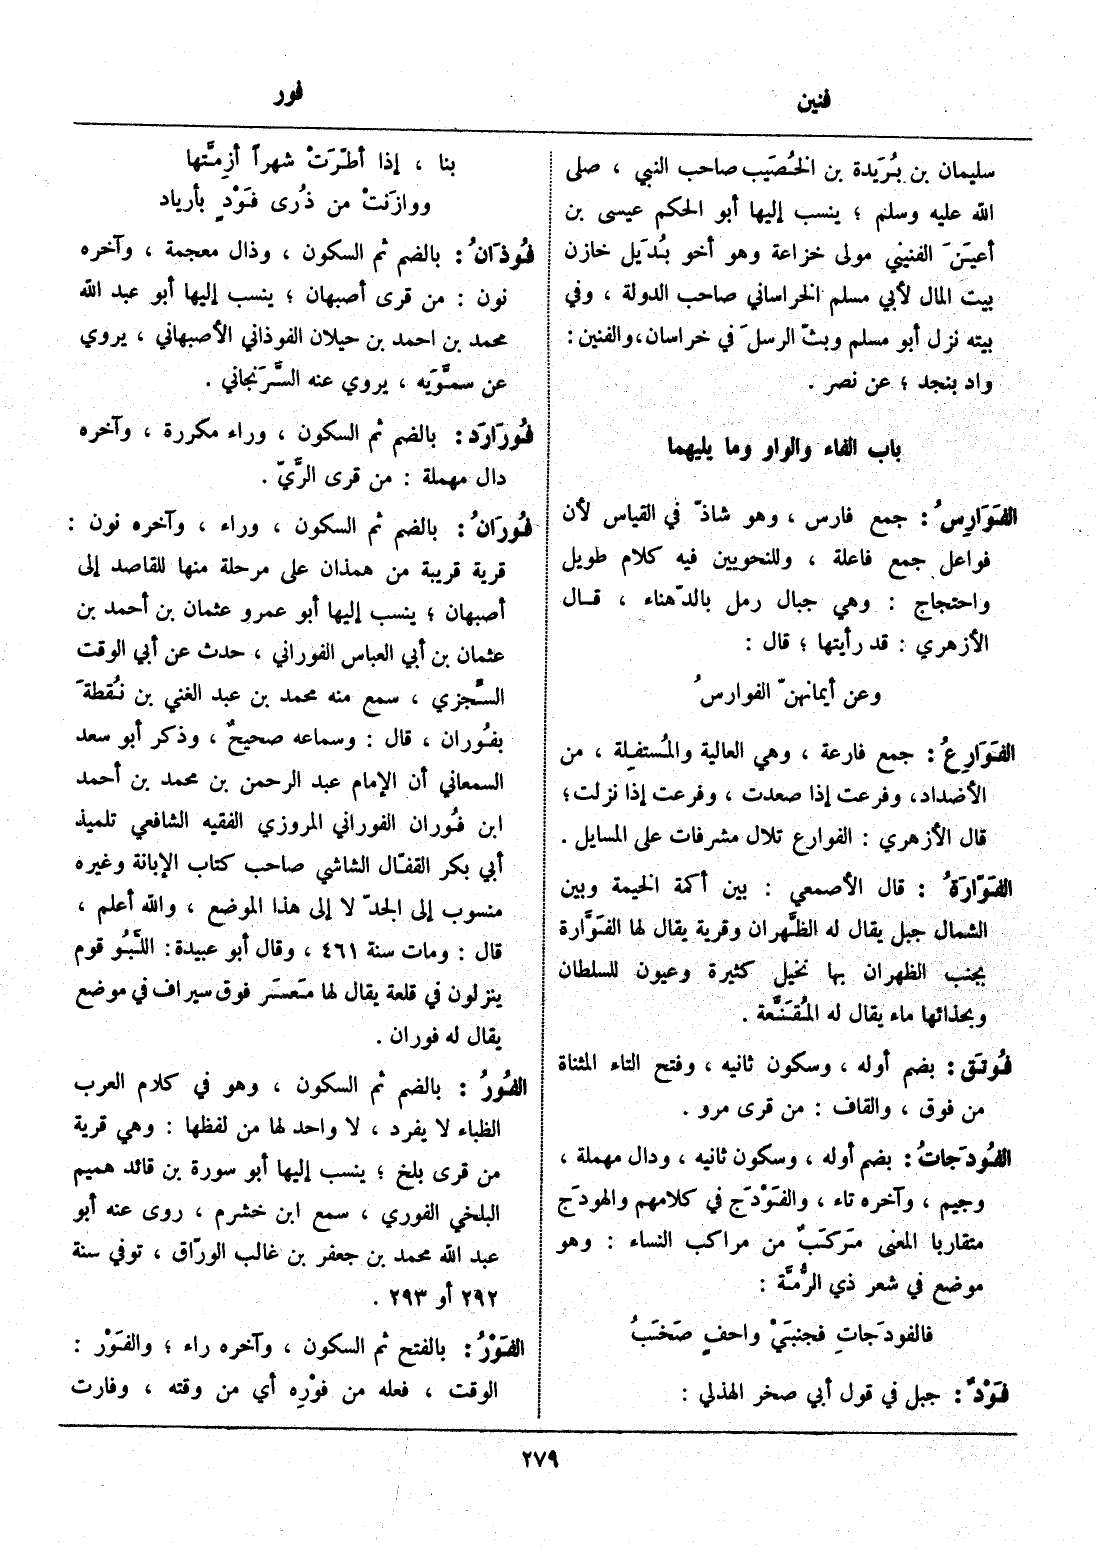 فنين
فور
سليمان بن بُرَيدة بن الحُصَيب صاحب النبي ، صلى
الله عليه وسلم ؛ ينسب إليها أبو الحكم عيسى بن
أعيَنَ الفنيني مولى خزاعة وهو أخو بُدَيل خازن
بيت المال لأبي مسلم الخراساني صاحب الدولة ، وفي
بيته نزل أبو مسلم وبثّ الرسلَ في خراسان، والفنين :
واد بنجد ؛ عن نصر .
باب الفاء والواو وما يليهما
الفَوَارِسُ : جمع فارس ، وهو شاذّ في القياس لأن
فواعل جمع فاعلة ، وللنحويين فيه كلام طويل
واحتجاج : وهي جبال رمل بالدّهناء ، قال
الأزهري : قد رأيتها ؛ قال :
وعن أيمانهنّ الفوارسُ
الفَوَارِعُ : جمع فارعة ، وهي العالية والمُستفِلة ، من
الأضداد، وفرعت إذا صعدت ، وفرعت إذا نزلت؛
قال الأزهري : الفوارع تلال مشرفات على المسايل .
الفَوّارَةُ : قال الأصمعي : بين أكمة الخيمة وبين
الشمال جبل يقال له الظَّهران وقرية يقال لها الفَوَّارة
بجنب الظهران بها نخيل كثيرة وعيون للسلطان
وبحذائها ماء يقال له المُقَنَّعة .
فُوتَق : بضم أوله ، وسكون ثانيه ، وفتح التاء المثناة
من فوق ، والقاف : من قرى مرو .
الفُودَجاتُ : بضم أوله ، وسكون ثانيه ، ودال مهملة ،
وجيم ، وآخره تاء ، والفَوْدَج في كلامهم والهودَج
متقاربا المعنى مَركَبٌ من مراكب النساء : وهو
موضع في شعر ذي الرُّمَّة :
فالفودَجاتِ فجنبَيْ واحفٍ صَخَبُ
فَوْدٌ : جبل في قول أبي صخر الهذلي :
بنا ، إذا أطّرَتْ شهراً أزِمَّتها
ووازَنتْ من ذُرى فَوْدٍ بأرياد
فُوذَانُ : بالضم ثم السكون ، وذال معجمة ، وآخره
نون : من قرى أصبهان ؛ ينسب إليها أبو عبد الله
محمد بن احمد بن حيلان الفوذاني الأصبهاني ، يروي
عن سمَّوَيه ، يروي عنه السَّرَنجاني .
فُورَارَد : بالضم ثم السكون ، وراء مكررة ، وآخره
دال مهملة : من قرى الرَّيّ .
فُورَانُ : بالضم ثم السكون ، وراء ، وآخره نون :
قرية قريبة من همذان على مرحلة منها للقاصد إلى
أصبهان ؛ ينسب إليها أبو عمرو عثمان بن أحمد بن
عثمان بن أبي العباس الفوراني ، حدث عن أبي الوقت
السِّجزي ، سمع منه محمد بن عبد الغني بن نُقطةَ
بفُوران ، قال : وسماعه صحيحٌ ، وذكر أبو سعد
السمعاني أن الإمام عبد الرحمن بن محمد بن أحمد
ابن فُوران الفوراني المروزي الفقيه الشافعي تلميذ
أبي بكر القفّال الشاشي صاحب كتاب الإبانة وغيره
منسوب إلى الجدّ لا إلى هذا الموضع ، والله أعلم ،
قال : ومات سنة ٤٦١ ، وقال أبو عبيدة : اللَّبُو قوم
ينزلون في قلعة يقال لها مَعسَر فوق سيراف في موضع
يقال له فوران .
الفُورُ : بالضم ثم السكون ، وهو في كلام العرب
الظباء لا يفرد ، لا واحد لها من لفظها : وهي قرية
من قرى بلخ ؛ ينسب إليها أبو سورة بن قائد هميم
البلخي الفوري ، سمع ابن خشرم ، روى عنه أبو
عبد الله محمد بن جعفر بن غالب الورّاق ، توفي سنة
٢٩٢ أو ٢٩٣ .
الفَوْرُ : بالفتح ثم السكون ، وآخره راء ؛ والفَوْر :
الوقت ، فعله من فوْرِه أي من وقته ، وفارت
٢٧٩